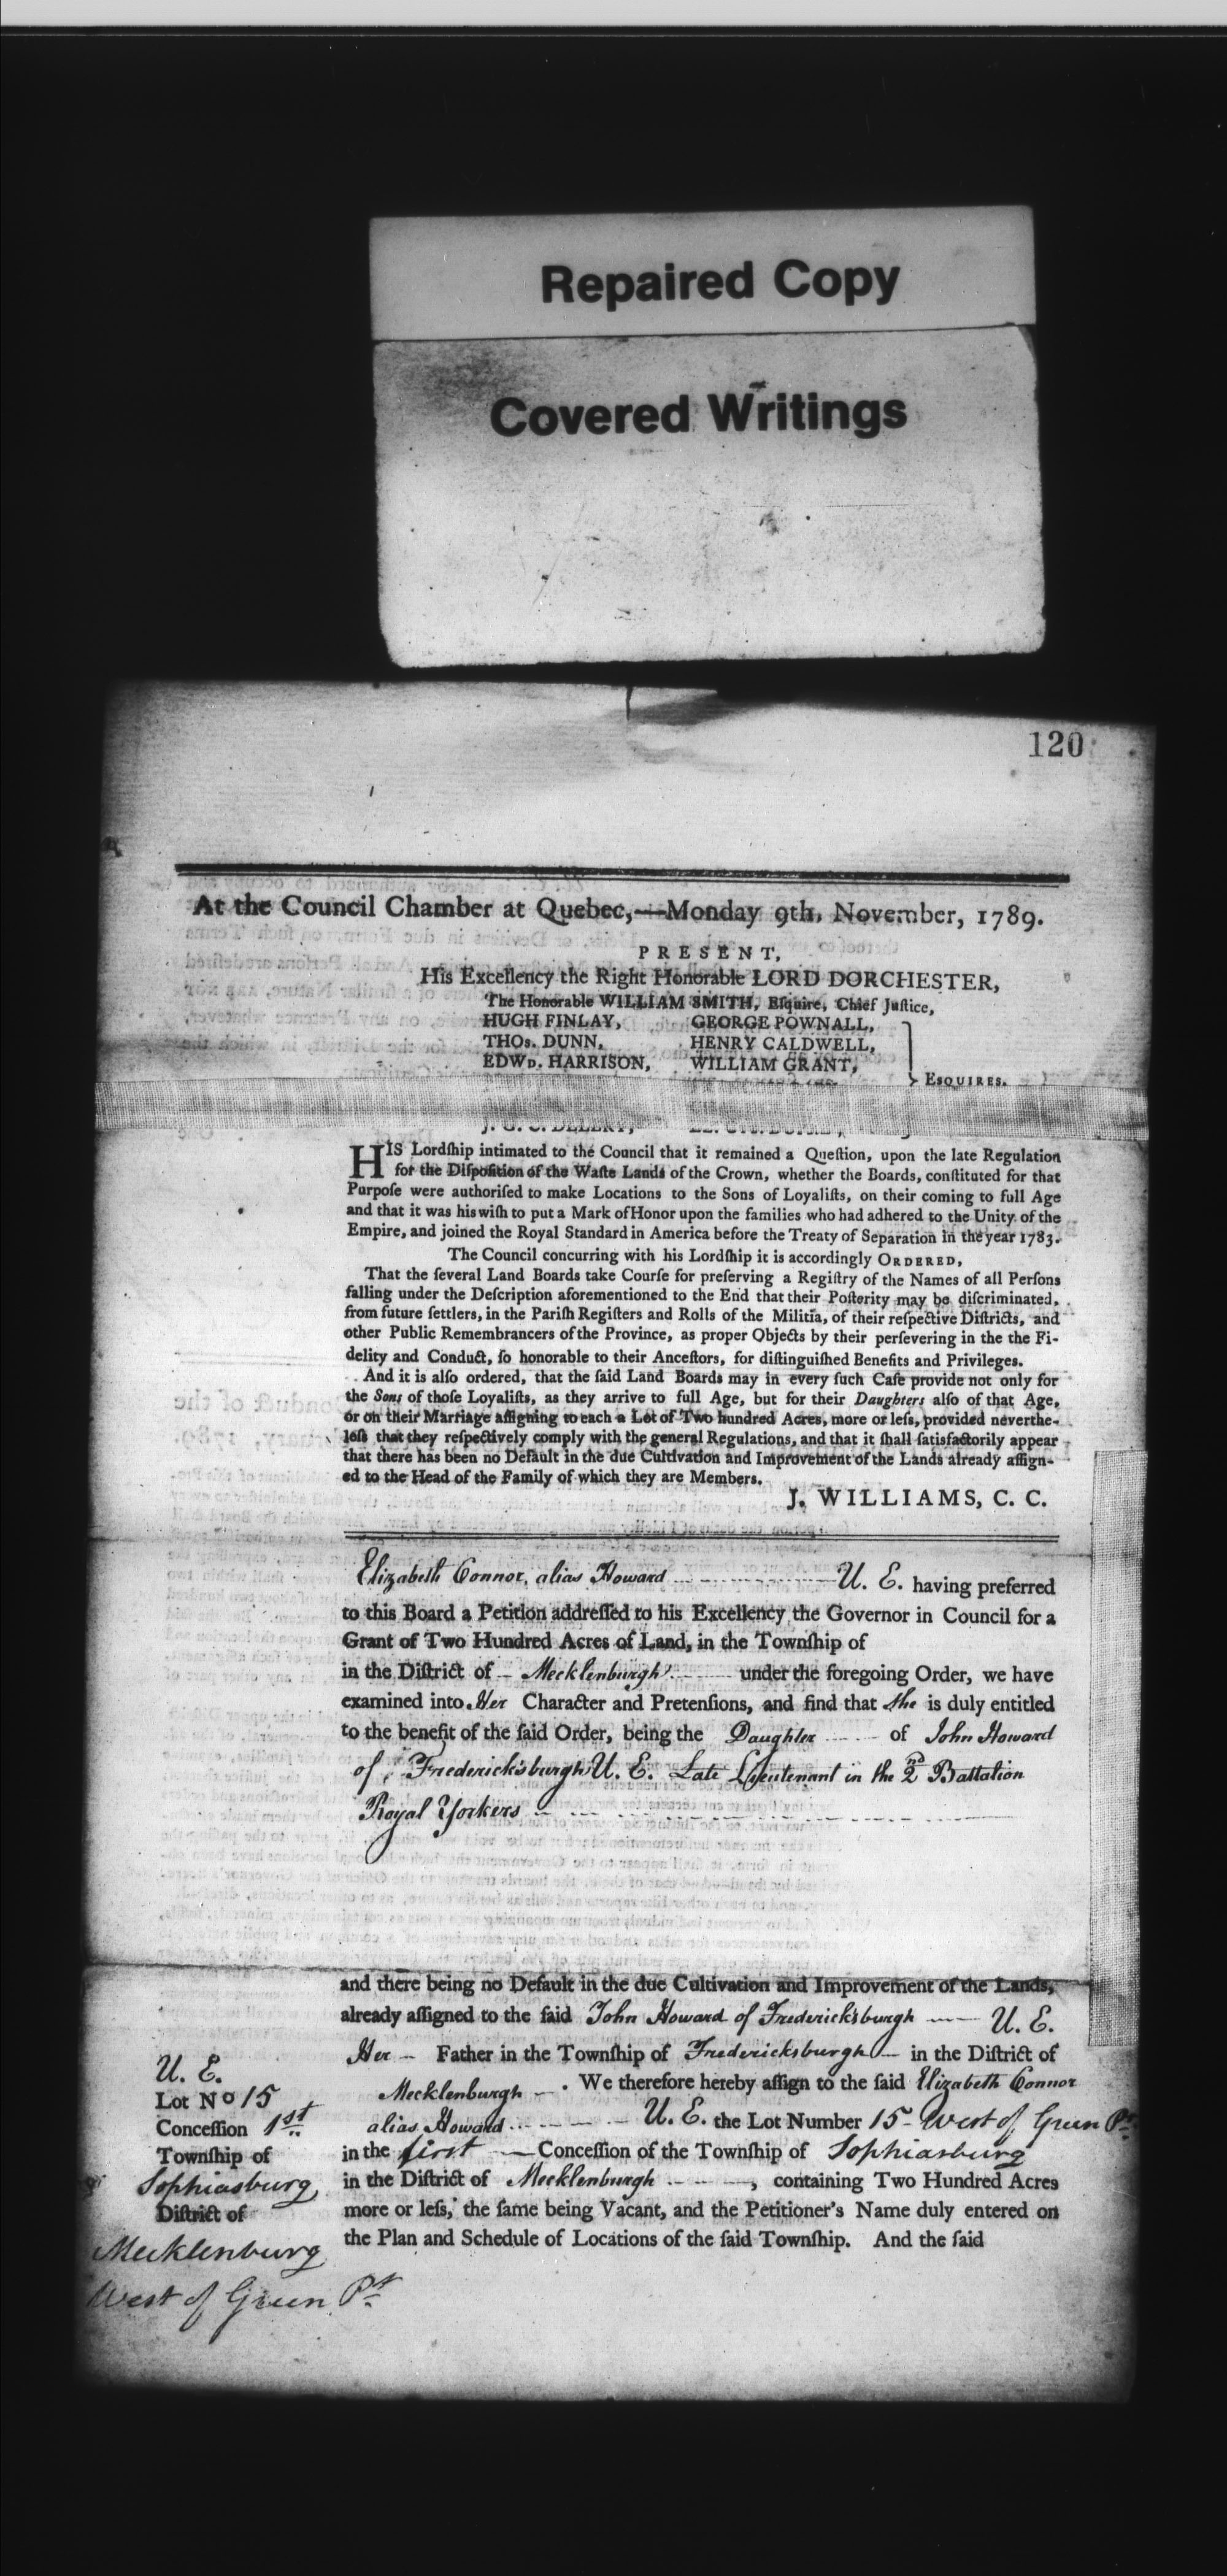 Repaired Copy
Covered Writings
120
At the Council Chamber at Quebec,—Monday 9th, November, 1789.
PRESENT,
His Excellency the Right Honorable LORD DORCHESTER,
The Honorable WILLIAM SMITH, Eſquire, Chief Juſtice,
HUGH FINLAY, GEORGE POWNALL,
THOs. DUNN, HENRY CALDWELL,
EDWD. HARRISON, WILLIAM GRANT,
ESQUIRES.
HIS Lordſhip intimated to the Council that it remained a Queſtion, upon the late Regulation
for the Diſpoſition of the Waſte Lands of the Crown, whether the Boards, conſtituted for that
Purpoſe were authoriſed to make Locations to the Sons of Loyaliſts, on their coming to full Age
and that it was his wiſh to put a Mark of Honor upon the families who had adhered to the Unity of the
Empire, and joined the Royal Standard in America before the Treaty of Separation in the year 1783.
The Council concurring with his Lordſhip it is accordingly ORDERED,
That the ſeveral Land Boards take Courſe for preſerving a Regiſtry of the Names of all Perſons
falling under the Deſcription aforementioned to the End that their Poſterity may be diſcriminated,
from future ſettlers, in the Pariſh Regiſters and Rolls of the Militia, of their reſpective Diſtricts, and
other Public Remembrancers of the Province, as proper Objects by their perſevering in the the Fi-
delity and Conduct, ſo honorable to their Anceſtors, for diſtinguiſhed Benefits and Privileges.
And it is alſo ordered, that the ſaid Land Boards may in every ſuch Caſe provide not only for
the Sons of thoſe Loyaliſts, as they arrive to full Age, but for their Daughters alſo of that Age,
or on their Marriage aſſigning to each a Lot of Two hundred Acres, more or leſs, provided neverthe-
leſs that they reſpectively comply with the general Regulations, and that it ſhall ſatisfactorily appear
that there has been no Default in the due Cultivation and Improvement of the Lands already aſſign-
ed to the Head of the Family of which they are Members.
J. WILLIAMS, C. C.
Elizabeth Connor, alias Howard U. E. having preferred
to this Board a Petition addreſſed to his Excellency the Governor in Council for a
Grant of Two Hundred Acres of Land, in the Townſhip of
in the Diſtrict of Mecklenburgh under the foregoing Order, we have
examined into Her Character and Pretenſions, and find that She is duly entitled
to the benefit of the ſaid Order, being the Daughter of John Howard
of Fredericksburgh U. E. Late Lieutenant in the 2nd Battalion
Royal Yorkers
and there being no Default in the due Cultivation and Improvement of the Lands,
already aſſigned to the ſaid John Howard of Fredericksburgh U. E.
Her Father in the Townſhip of Fredericksburgh in the Diſtrict of
Mecklenburgh . We therefore hereby aſſign to the ſaid Elizabeth Connor
alias Howard U. E. the Lot Number 15 West of Green Pt
in the first Conceſſion of the Townſhip of Sophiasburg
in the Diſtrict of Mecklenburgh , containing Two Hundred Acres
more or leſs, the ſame being Vacant, and the Petitioner's Name duly entered on
the Plan and Schedule of Locations of the ſaid Townſhip. And the ſaid
U. E.
Lot No 15
Conceſſion 1st
Townſhip of
Sophiasburg
Diſtrict of
Mecklenburg
West of Green Pt